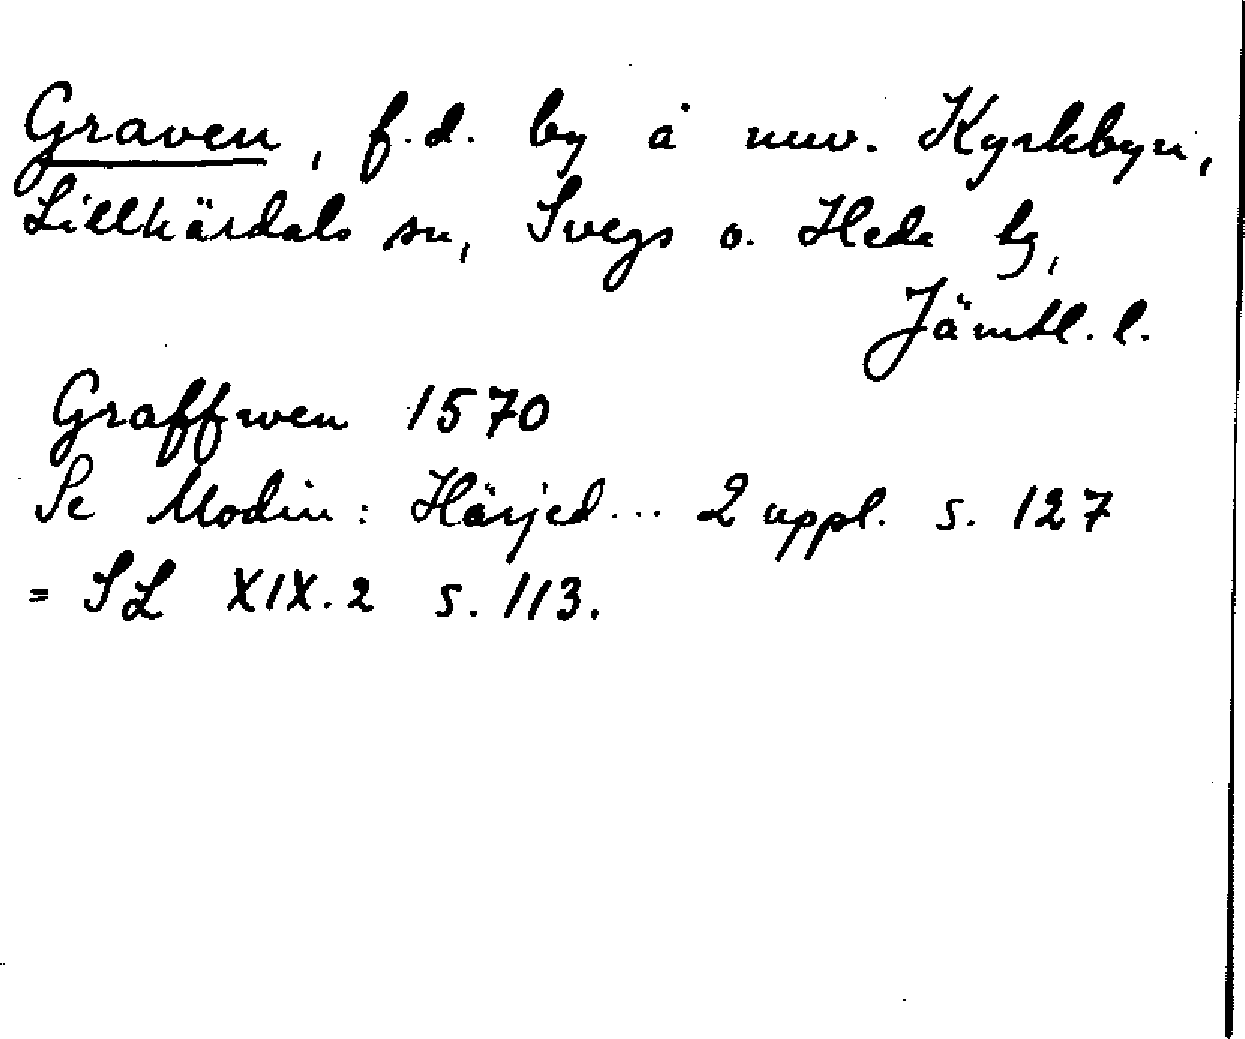 Graven, f.d. by å nuv. Kyrkbyn,
Lillhärdals sn, Svegs o. Hede tg,
Jämtl. l.
Graffwen 1570
Se Modin: Härjed... 2 uppl. s. 127
= SL XIX.2 s. 113.